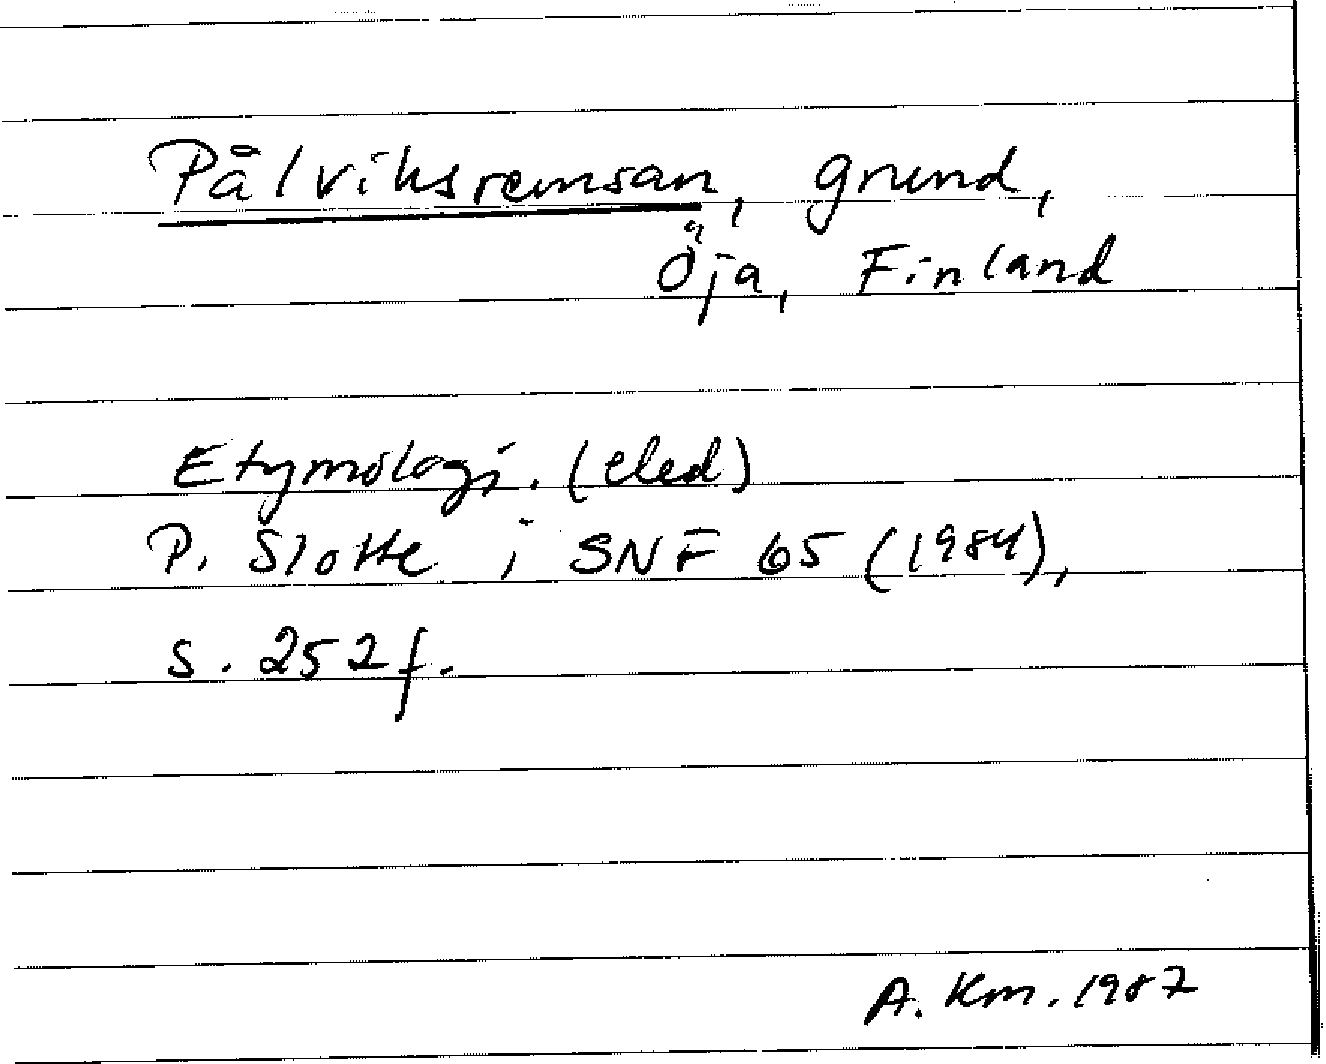 Pålviksremsan, grund,
Öja, Finland
Etymologi. (eled)
P. Slotte i SNF 65 (1984),
s. 252 f.
A. Km. 1987